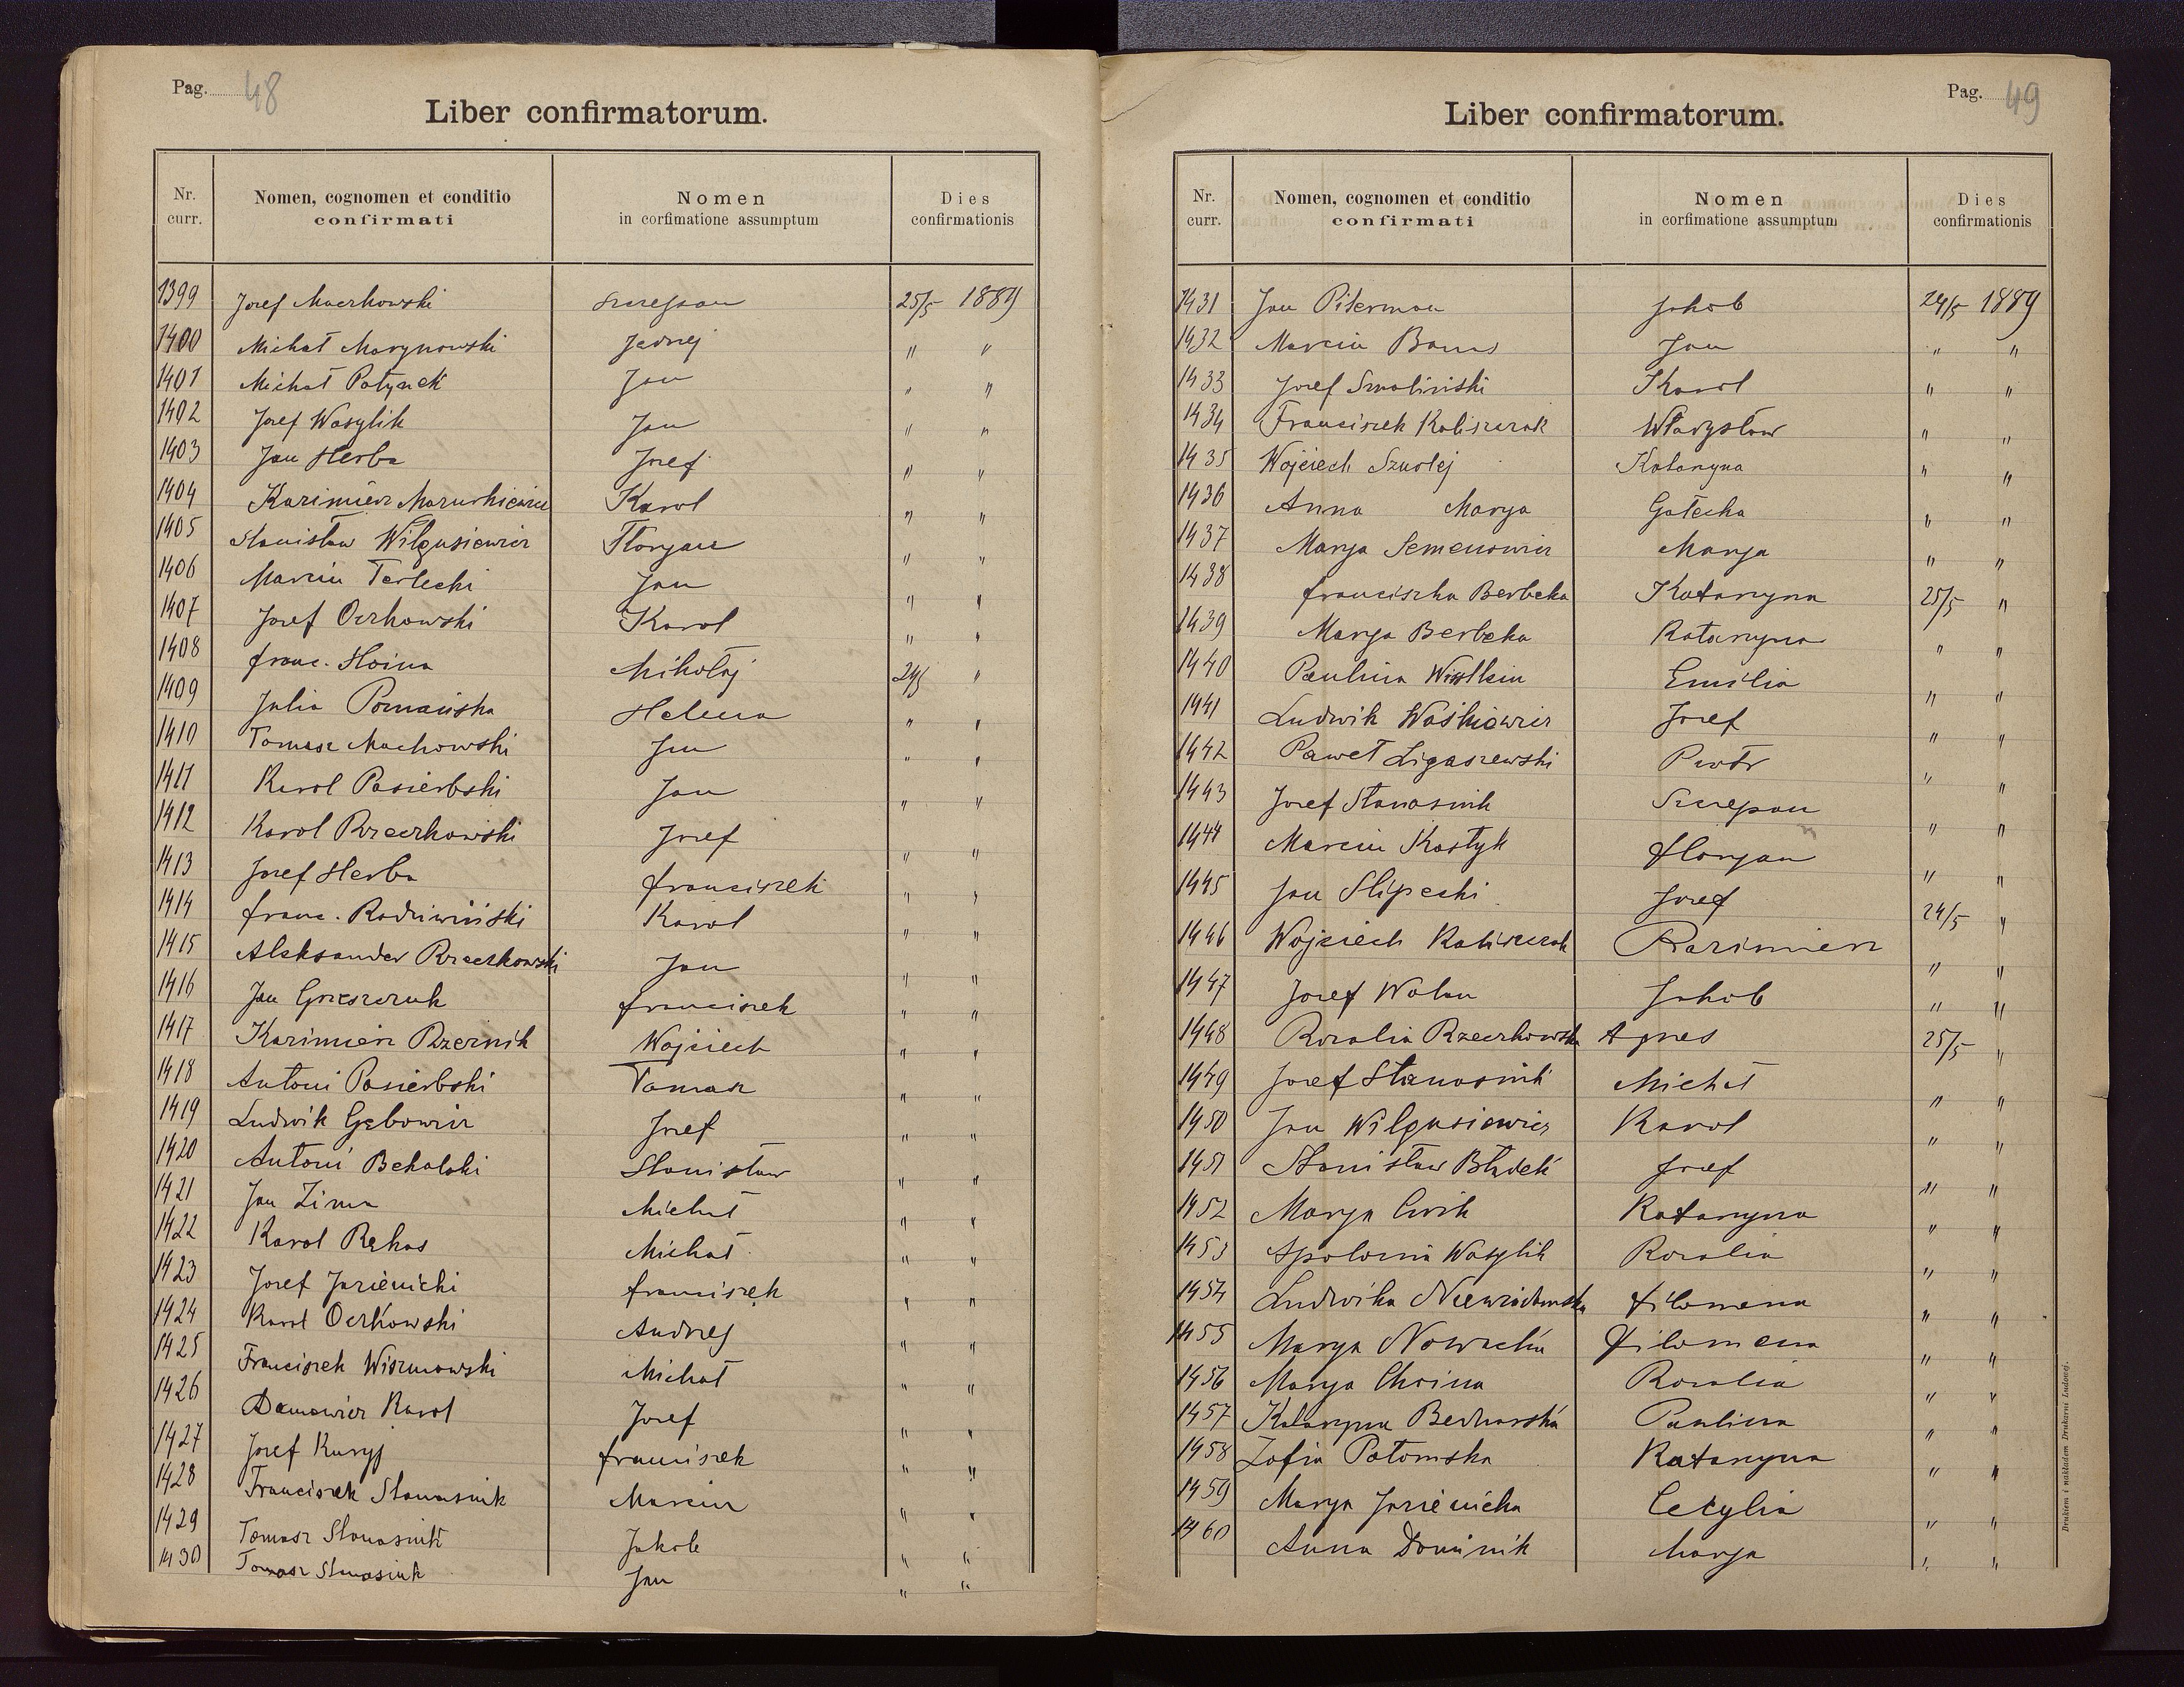 Pag. 48
Liber confirmatorum.
Nr. curr. Nomen, cognomen et conditio confirmati Nomen in corfimatione assumptum Dies confirmationis
1399 Josef Maczkowski Szczepan 25/5 1889
1400 Michał Marynowski Jędrzej " "
1401 Michał Patynek Jan " "
1402 Josef Wasylik Jan " "
1403 Jan Herba Josef " "
1404 Kazimierz Karol " "
1405 Stanisław Wilgusiewicz Floryan " "
1406 Marcin Terlecki Jan " "
1407 Josef Oczkowski Karol " "
1408 franc. Hoina Mikołaj 24/5 "
1409 Julia Pomańska Helena " "
1410 Tomasz Machowski Jan " "
1411 Karol Pasierbski Jan " "
1412 Karol Rzeczkowski Josef " "
1413 Josef Herba franciszek " "
1414 franc. Radziwiński Karol " "
1415 Aleksander Rzeczkowski Jan " "
1416 Jan Grzeszczuk franciszek " "
1417 Kazimierz Rzeznik Wojciech " "
1418 Antoni Pasierbski Tomasz " "
1419 Ludwik Gębowicz Josef " "
1420 Antoni Bekalski Stanisław " "
1421 Jan Zima Michał " "
1422 Karol Rękas Michał " "
1423 Josef Jazienicki franciszek " "
1424 Karol Oczkowski Andrzej " "
1425 Franciszek Wiszniowski Michał " "
1426 Damowicz Karol Josef " "
1427 Josef Kuryj franciszek " "
1428 Franciszek Stanasiuk Marcin " "
1429 Tomasz Stanasiuk Jakób " "
1430 Tomasz Stanasiuk Jan " "
Pag. 49
Liber confirmatorum.
Nr. curr. Nomen, cognomen et conditio confirmati Nomen in corfimatione assumptum Dies confirmationis
1431 Jan Piterman Jakob 24/5 1889
1432 Marcin Jan " "
1433 Josef Smoliński Karol " "
1434 Franciszek Kaliszczak Władysław " "
1435 Wojciech Szustej Katarzyna " "
1436 Anna Marya Gałecka " "
1437 Marya Semenowicz Marya " "
1438 franciszka Berbeka Katarzyna 25/5 "
1439 Marya Berbeka Katarzyna " "
1440 Paulina Emilia " "
1441 Ludwik Waśkiewicz Josef " "
1442 Paweł Ligaszewski Piotr " "
1443 Josef Stanasiuk Szczepan " "
1444 Marcin Kostyk Floryan " "
1445 Jan Slipecki Josef 24/5 "
1446 Wojciech Kaliszczak Kazimierz " "
1447 Josef Wolan Jakob " "
1448 Rozalia Rzeczkowska Agnes 25/5 "
1449 Josef Stanasiuk Michał " "
1450 Jan Wilgusiewicz Karol " "
1451 Stanisław Bładek Josef " "
1452 Marya Cwik Katarzyna " "
1453 Apolonia Wasylik Rozalia " "
1454 Ludwika Niewiadomska filomena " "
1455 Marya Nowacka Filomena " "
1456 Marya Choina Rozalia " "
1457 Katarzyna Bednarska Paulina " "
1458 Zofia Potomska Katarzyna " "
1459 Marya Jazienicka Cecylia " "
1460 Anna Dominik Marya " "
Drukiem i nakładem Drukarni Ludowej.